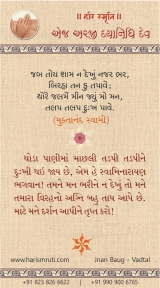 ॥ हरि स्मृति ॥
એજ અરજી દયાનિધિ દેવ
જબ તોય શામ ન દેખું નજર ભર,
બિરહા તન કુ તપાવે;
થોરે જલમેં મીન જ્યું મો મન,
તલપ તલપ દુઃખ પાવે.
(મુક્તાનંદ સ્વામી)
થોડા પાણીમાં માછલી તડપી તડપીને
દુઃખી થઈ જાય છે, એમ હે સ્વામિનારાયણ
ભગવાન! તમને મન ભરીને ન દેખું તો મને
તમારા વિરહનો અગ્નિ બહુ તાપ આપે છે.
માટે મને દર્શન આપીને તૃપ્ત કરો!
www.harismruti.com
Jnan Baug - Vadtal
+91 823 826 6622 | +91 990 900 6765